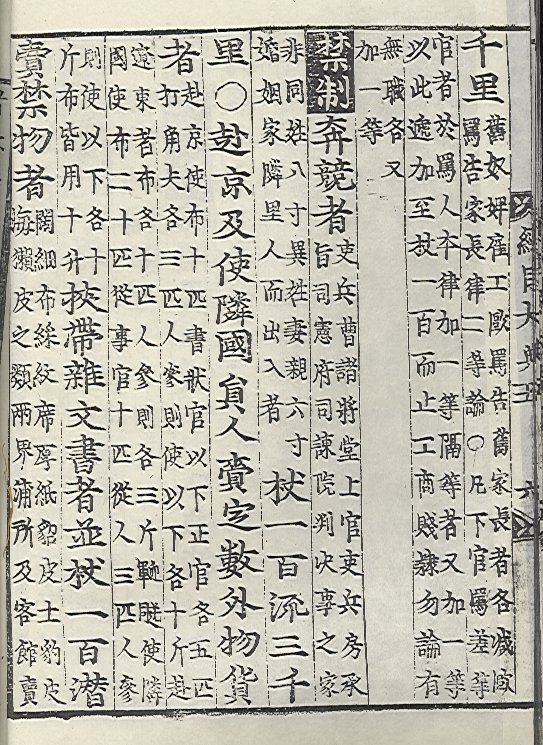 經國大典五 六
千里舊奴婢雇工歐罵告舊家長者各減歐
罵告家長律二等論○凡下官罵差等
官者於罵人本律加一等隔等者又加一等
以此遞加至杖一百而止工商賤隷勿論有
無職各又
加一等
禁制奔競者吏兵曹諸將堂上官吏兵房承
旨司憲府司諫院判決事之家
非同姓八寸異姓妻親六寸
婚姻家隣里人而出入者杖一百流三千
里○赴京及使隣國員人賫定數外物貨
者赴京使布十匹書狀官以下正官各五匹
打角夫各三匹人參則使以下各十斤赴
遼東者布各十匹人參則各三斤使隣
國使布二十匹從事官十匹從人三匹人參
則使以下各十
斤布皆用十升挾帶雜文書者並杖一百潛
賣禁物者闊細布綵紋席厚紙貂皮土豹皮
海獺皮之類兩界浦所及客館賣